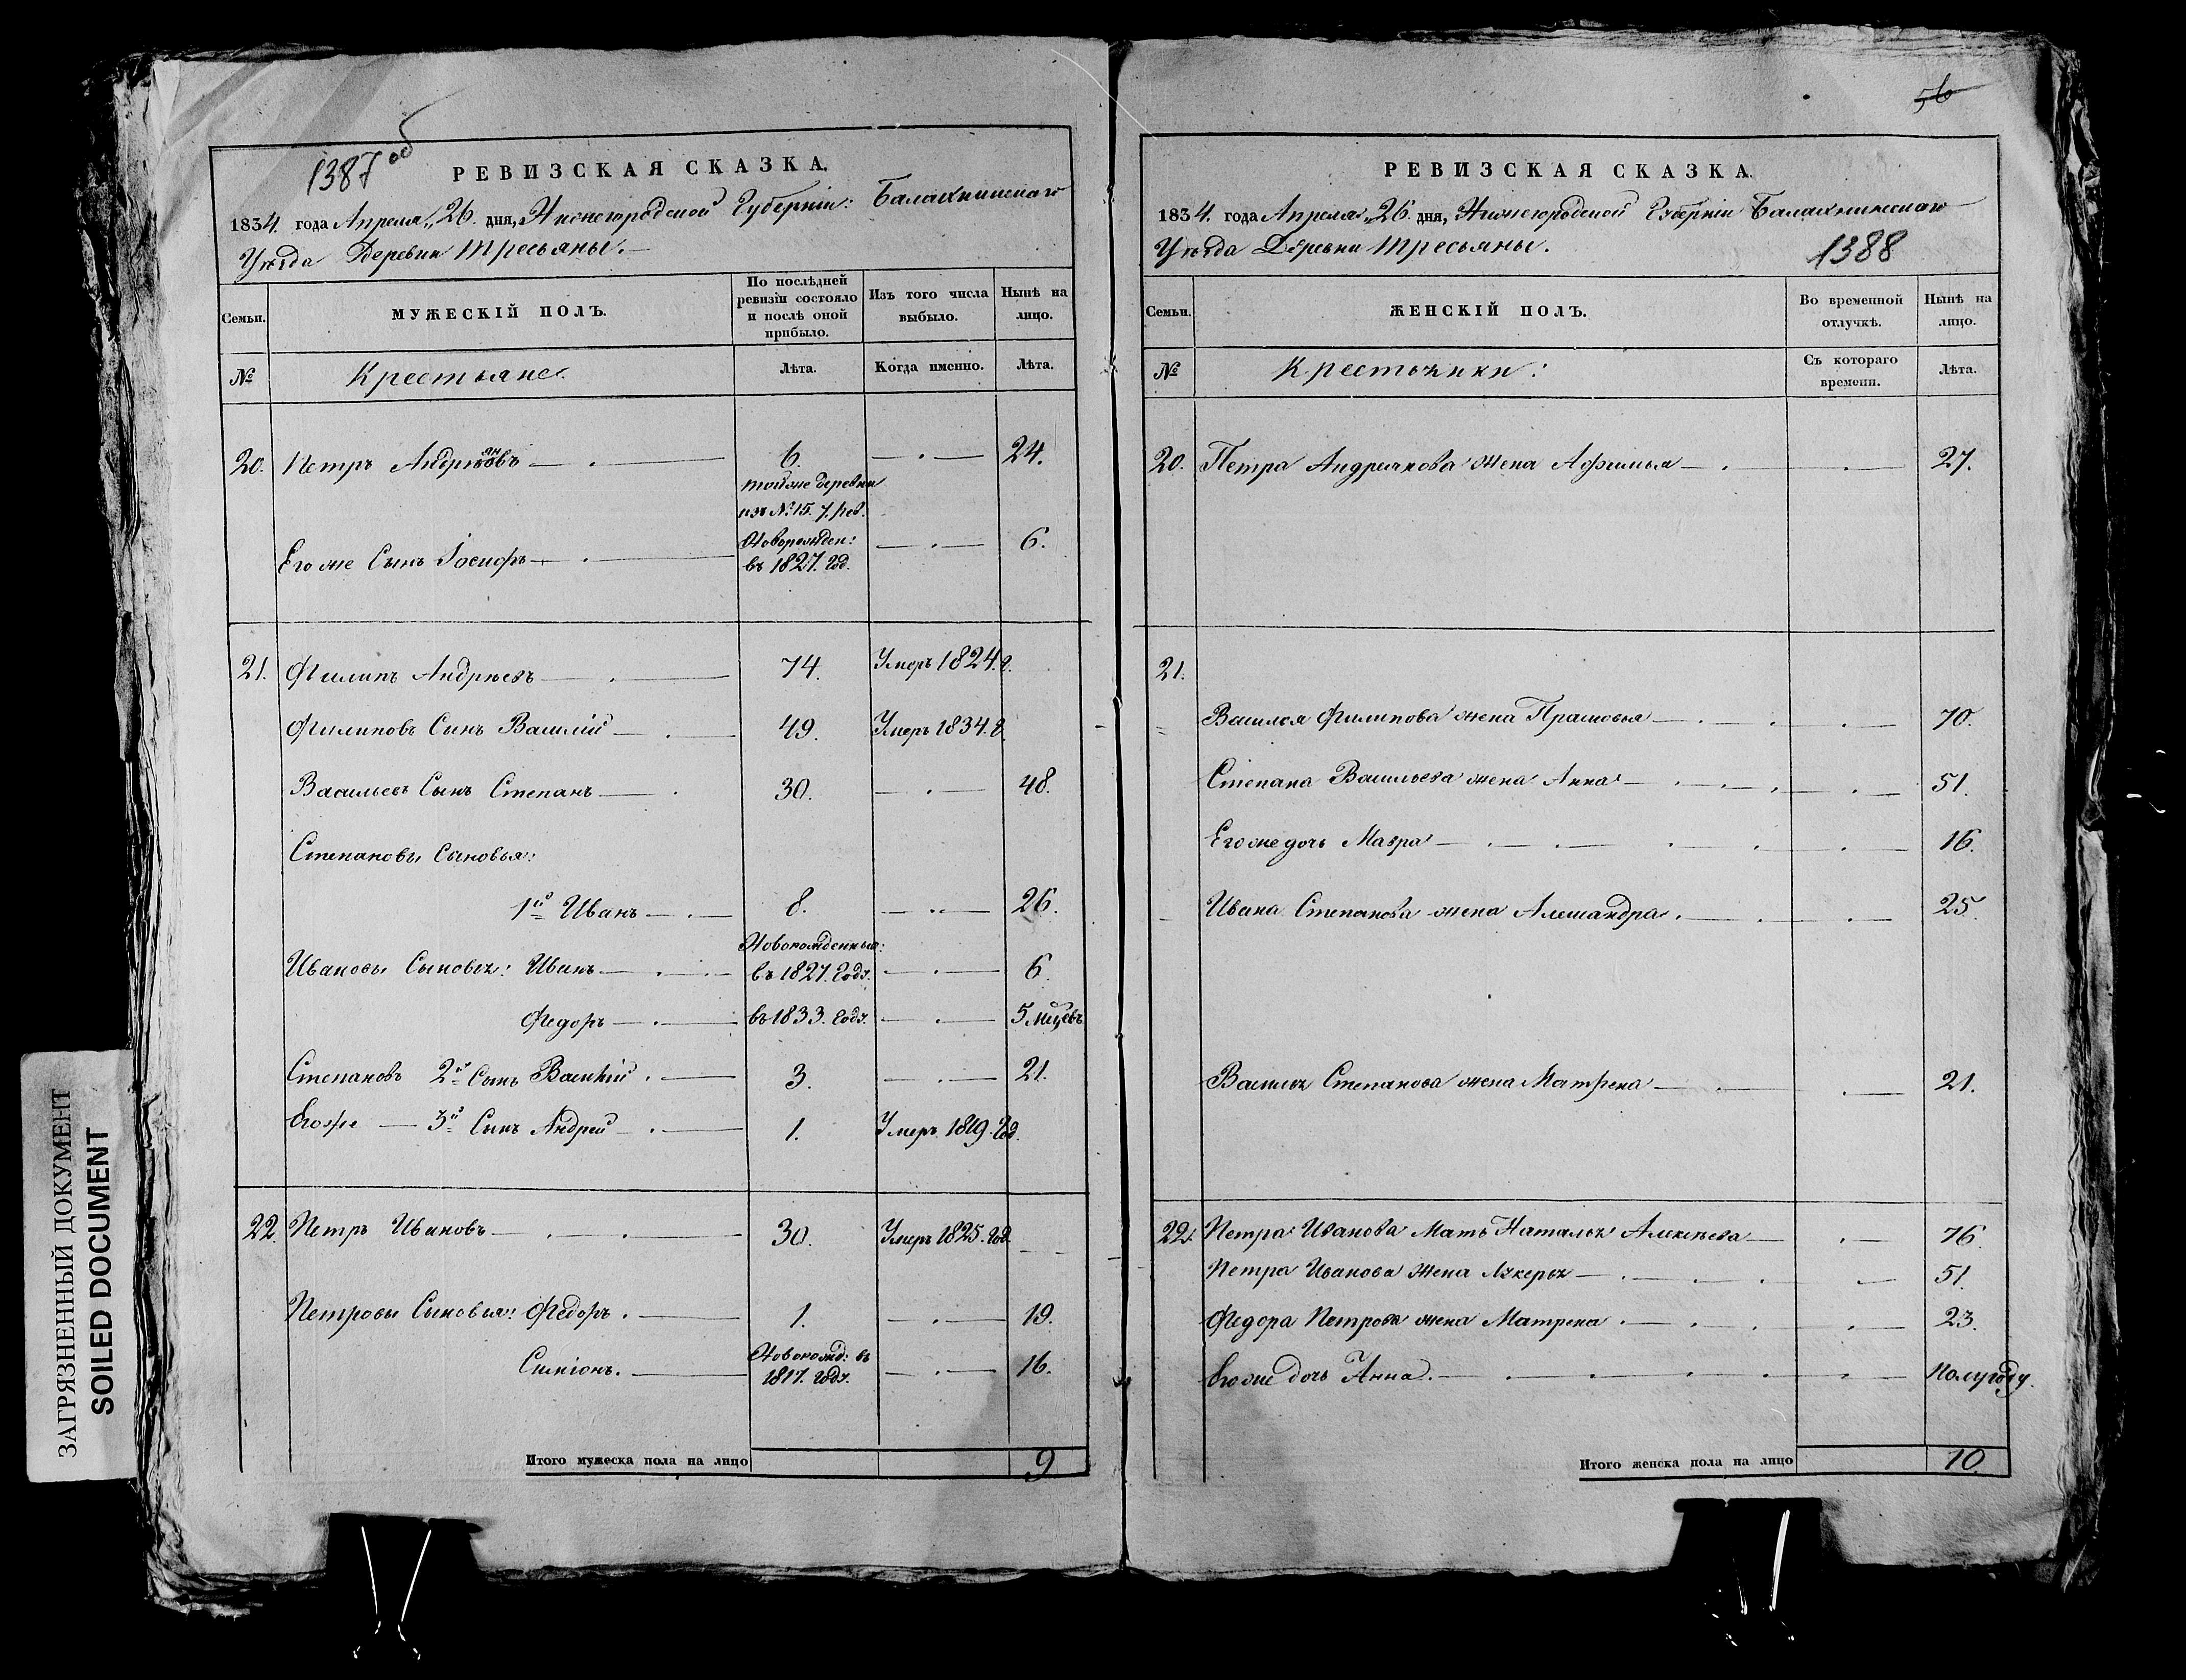 ЗАГРЯЗНЕННЫЙ ДОКУМЕНТ
SOILED DOCUMENT
1387 об
РЕВИЗСКАЯ СКАЗКА.
1834. года Апреля „26. дня, Нижегородской Губерніи: Балахнинскаго
Уѣзда Деревни Тресьяны.
Семьи.
МУЖЕСКІЙ ПОЛЪ.
По послѣдней ревизіи состояло и послѣ оной прибыло.
Изъ того числа выбыло.
Нынѣ на лицо.
№
Крестьяне.
Лѣта.
Когда именно.
Лѣта.
20. Петръ Андреяновъ 6. 24.
тойже деревни
изъ №15. 7. рев.
Новорожден:
Его же Сынъ Іосифъ въ 1827. год. 6.
21. Филипъ Андрѣевъ 74. Умеръ 1824. г.
Филиповъ Сынъ Василій 49. Умеръ 1834. г.
Васильевъ Сынъ Степанъ 30. 48.
Степановы Сыновья:
1й Иванъ 8. 26.
Новорожденныя:
Ивановы Сыновья: Иванъ въ 1827. году. 6.
Федоръ въ 1833. году. 5 мцевъ
Степановъ 2й Сынъ Василій 3. 21.
Егоже 3й Сынъ Андрей 1. Умеръ 1819. год.
22. Петръ Ивановъ 30. Умеръ 1825. год.
Петровы Сыновья: Федоръ. 1. 19.
Новорожд: въ
Симіонъ. 1817. году. 16.
Итого мужеска пола на лицо 9
56
РЕВИЗСКАЯ СКАЗКА.
1834. года Апреля „26. дня, Нижегородской Губерніи Балахнинскаго
Уѣзда Деревни Тресьяны.
1388
Семьи.
ЖЕНСКІЙ ПОЛЪ.
Во временной отлучкѣ.
Нынѣ на лицо.
№
Крестьянки:
Съ котораго времени.
Лѣта.
20. Петра Андреянова жена Афимья 27.
21.
Василья Филипова жена Прасковья 70.
Степана Васильева жена Анна 51.
Егоже дочь Мавра 16.
Ивана Степанова жена Александра. 25.
Василья Степанова жена Матрена 21.
22. Петра Иванова Мать Наталья Алексѣева 76.
Петра Иванова жена Лукерья 51.
Федора Петрова жена Матрена. 23.
Его же дочь Анна. полугоду.
Итого женска пола на лицо 10.